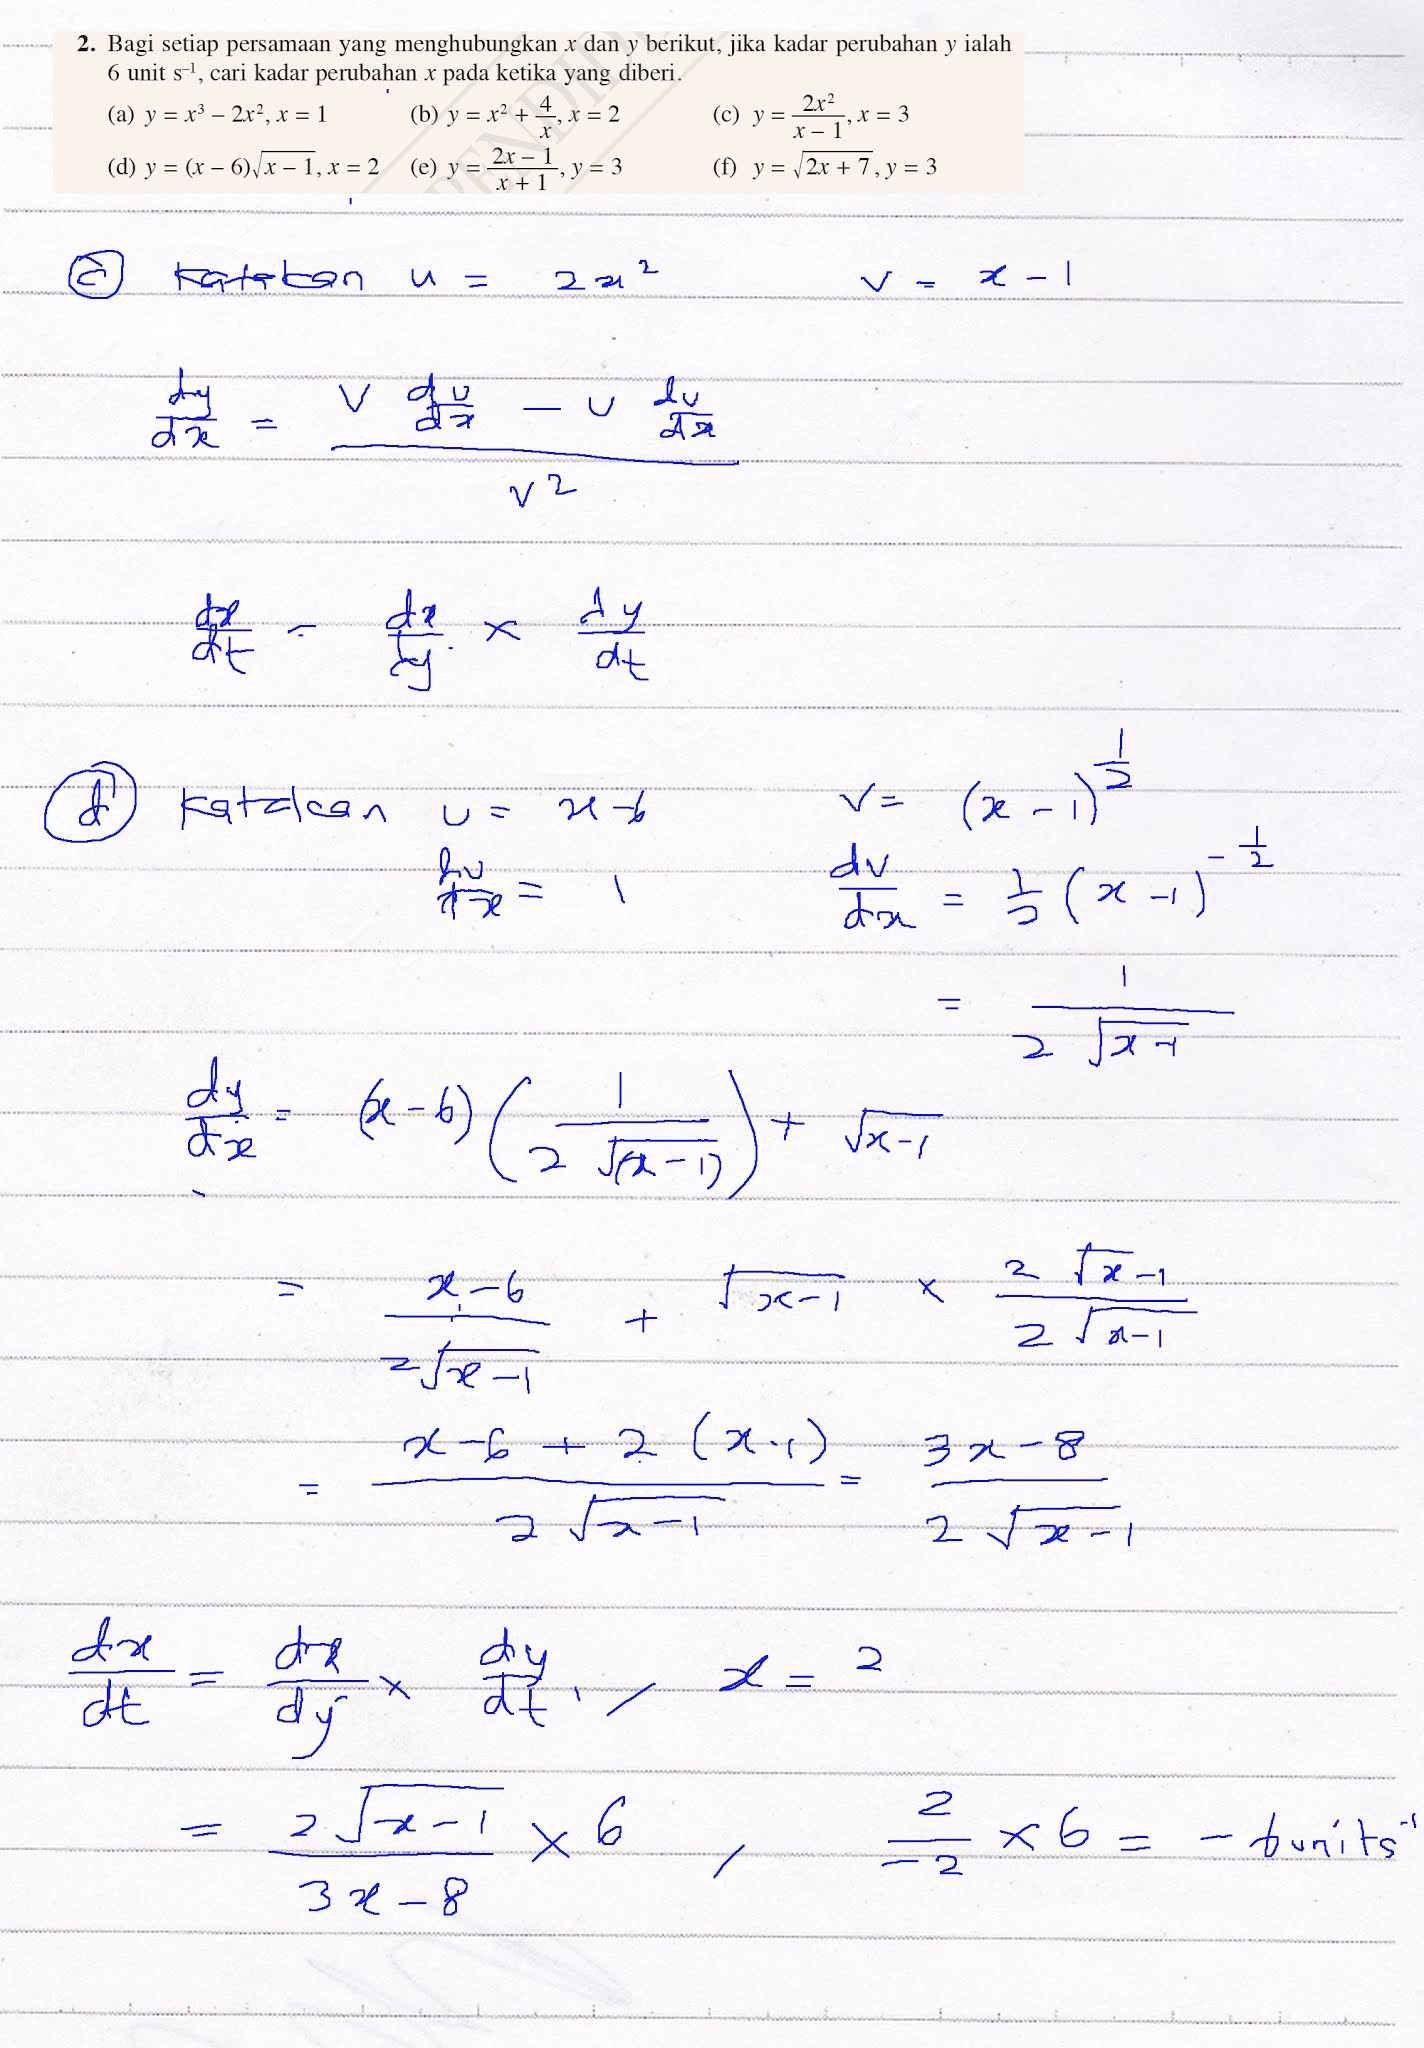 2. Bagi setiap persamaan yang menghubungkan x dan y berikut, jika kadar perubahan y ialah
6 unit s⁻¹, cari kadar perubahan x pada ketika yang diberi.
(a) y = x³ – 2x², x = 1 (b) y = x² + 4/x, x = 2 (c) y = 2x²/(x – 1), x = 3
(d) y = (x – 6)√(x – 1), x = 2 (e) y = (2x – 1)/(x + 1), y = 3 (f) y = √(2x + 7), y = 3
(c) Katakan u = 2x² v = x - 1
dy/dx = (v du/dx - u dv/dx)/v²
dx/dt = dx/dy × dy/dt
(d) Katakan u = x - 6 v = (x - 1)^(1/2)
du/dx = 1 dv/dx = 1/2 (x - 1)^(-1/2)
= 1/(2√(x-1))
dy/dx = (x - 6)(1/(2√(x - 1))) + √(x-1)
= (x-6)/(2√(x-1)) + √(x-1) × (2√x-1)/(2√(x-1))
= (x-6 + 2(x-1))/(2√(x-1)) = (3x-8)/(2√(x-1))
dx/dt = dx/dy × dy/dt, x = 2
= (2√(x-1))/(3x-8) × 6, 2/-2 × 6 = -6 unit s⁻¹